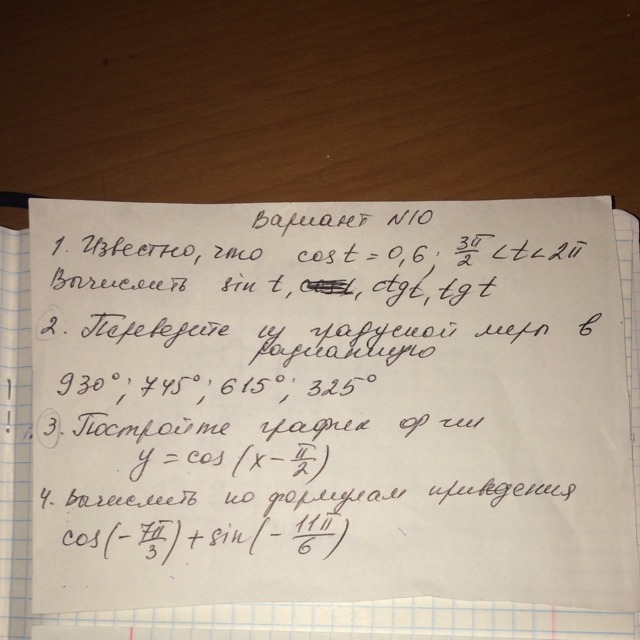 Вариант N10
1. Известно, что cos t = 0,6; 3π/2 < t < 2π
Вычислить sin t, ctg t, tg t
2. Переведите из градусной меры в
радианную
930°; 745°; 615°; 325°
3. Постройте график ф-ии
y = cos (x - π/2)
4. Вычислить по формулам приведения
cos(-7π/3) + sin(-11π/6)